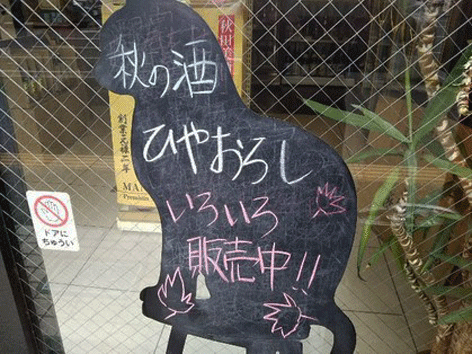 秋の酒
ひやおろし
いろいろ
販売中!!
ドアに
ちゅうい
創業元禄二年